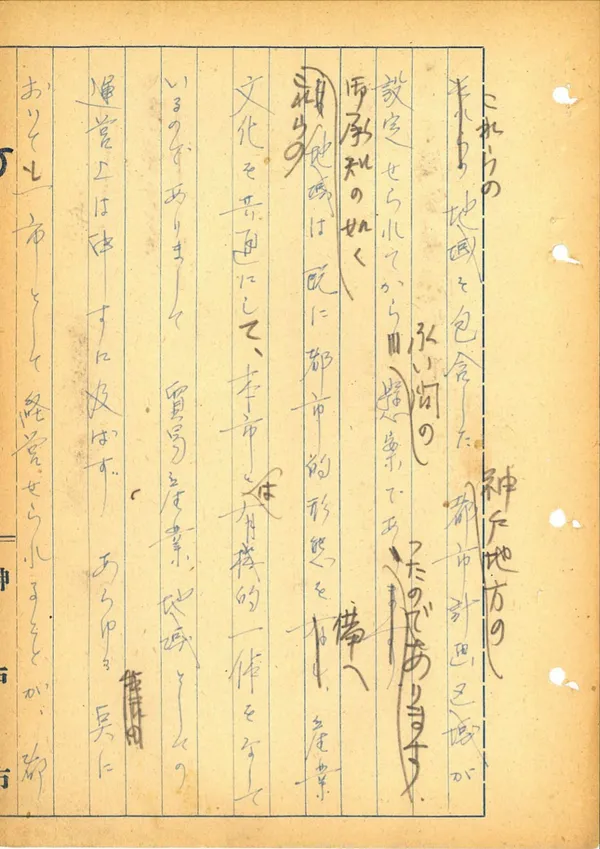 これらの
それらの地域を包含した都市計画区域が
神戸地方の
設定せられてから懸案であ
永い間の
つたのであります
御承知の如く
これらの
地域は既に都市的形態を 産業
備へ
文化を共通にして、本市とは有機的一体をなして
いるのでありまして 貿易産業、地域としての
運営上は申すに及ばず あらゆる点に
おいても一市として経営せられることが、都
神戸市